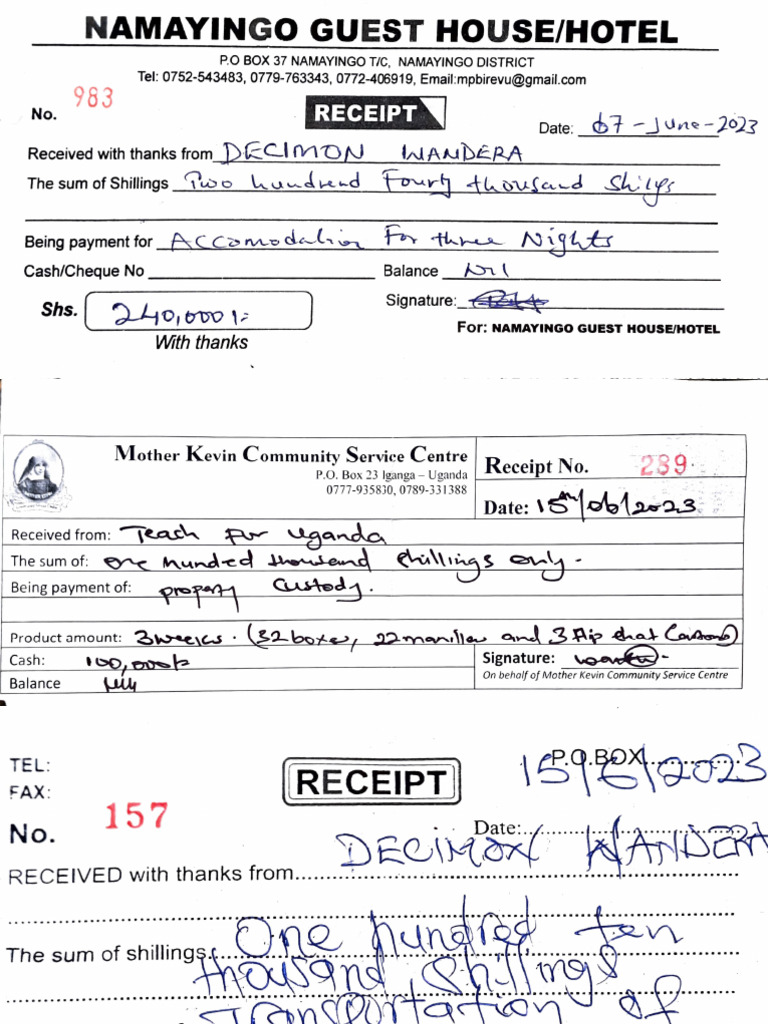 NAMAYINGO GUEST HOUSE/HOTEL
P.O BOX 37 NAMAYINGO T/C, NAMAYINGO DISTRICT
Tel: 0752-543483, 0779-763343, 0772-406919, Email:mpbirevu@gmail.com
No. 983 RECEIPT Date: 07-June-2023
Received with thanks from DECIMON WANDERA
The sum of Shillings Two hundrend Fourty thousand Shilgs
Being payment for Accomodation For three Nights
Cash/Cheque No Balance Nil
Shs. 240,000/= Signature:
With thanks For: NAMAYINGO GUEST HOUSE/HOTEL
Mother Kevin Community Service Centre
P.O. Box 23 Iganga – Uganda
0777-935830, 0789-331388
Receipt No. 289
Date: 15th/06/2023
Received from: Teach for Uganda
The sum of: One hundred thousand shillings only.
Being payment of: property Custody.
Product amount: 3 weeks. (32 boxes, 22 manillas and 3 flip chat
Cash: 100,000/= Signature:
Balance On behalf of Mother Kevin Community Service Centre
TEL: RECEIPT P.O.BOX
FAX: 15/6/2023
No. 157 Date:
RECEIVED with thanks from DECIMON WANDERA
The sum of shillings One hundred ten
thousand shillings
Transportation of